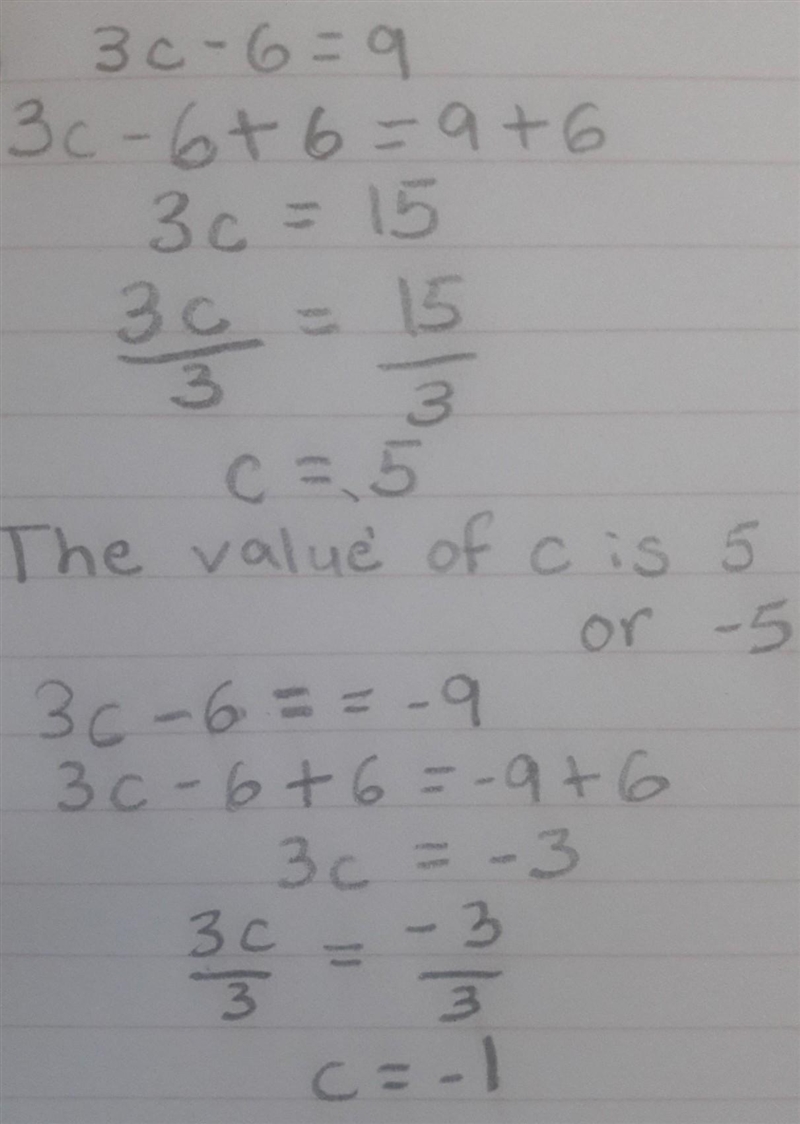 3c - 6 = 9
3c - 6 + 6 = 9 + 6
3c = 15
3c/3 = 15/3
c = 5
The value of c is 5
or -5
3c - 6 = = -9
3c - 6 + 6 = -9 + 6
3c = -3
3c/3 = -3/3
c = -1